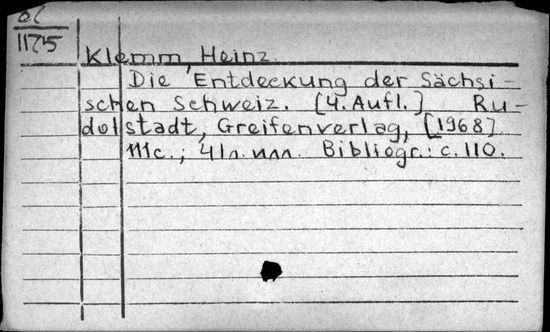 1175
Klemm, Heinz.
Die Entdeckung der Sächsi-
schen Schweiz. [4. Aufl.] Ru-
dolstadt, Greifenverlag, [1968]
111c.; 4 ил.
Bibliogr.: c. 110.